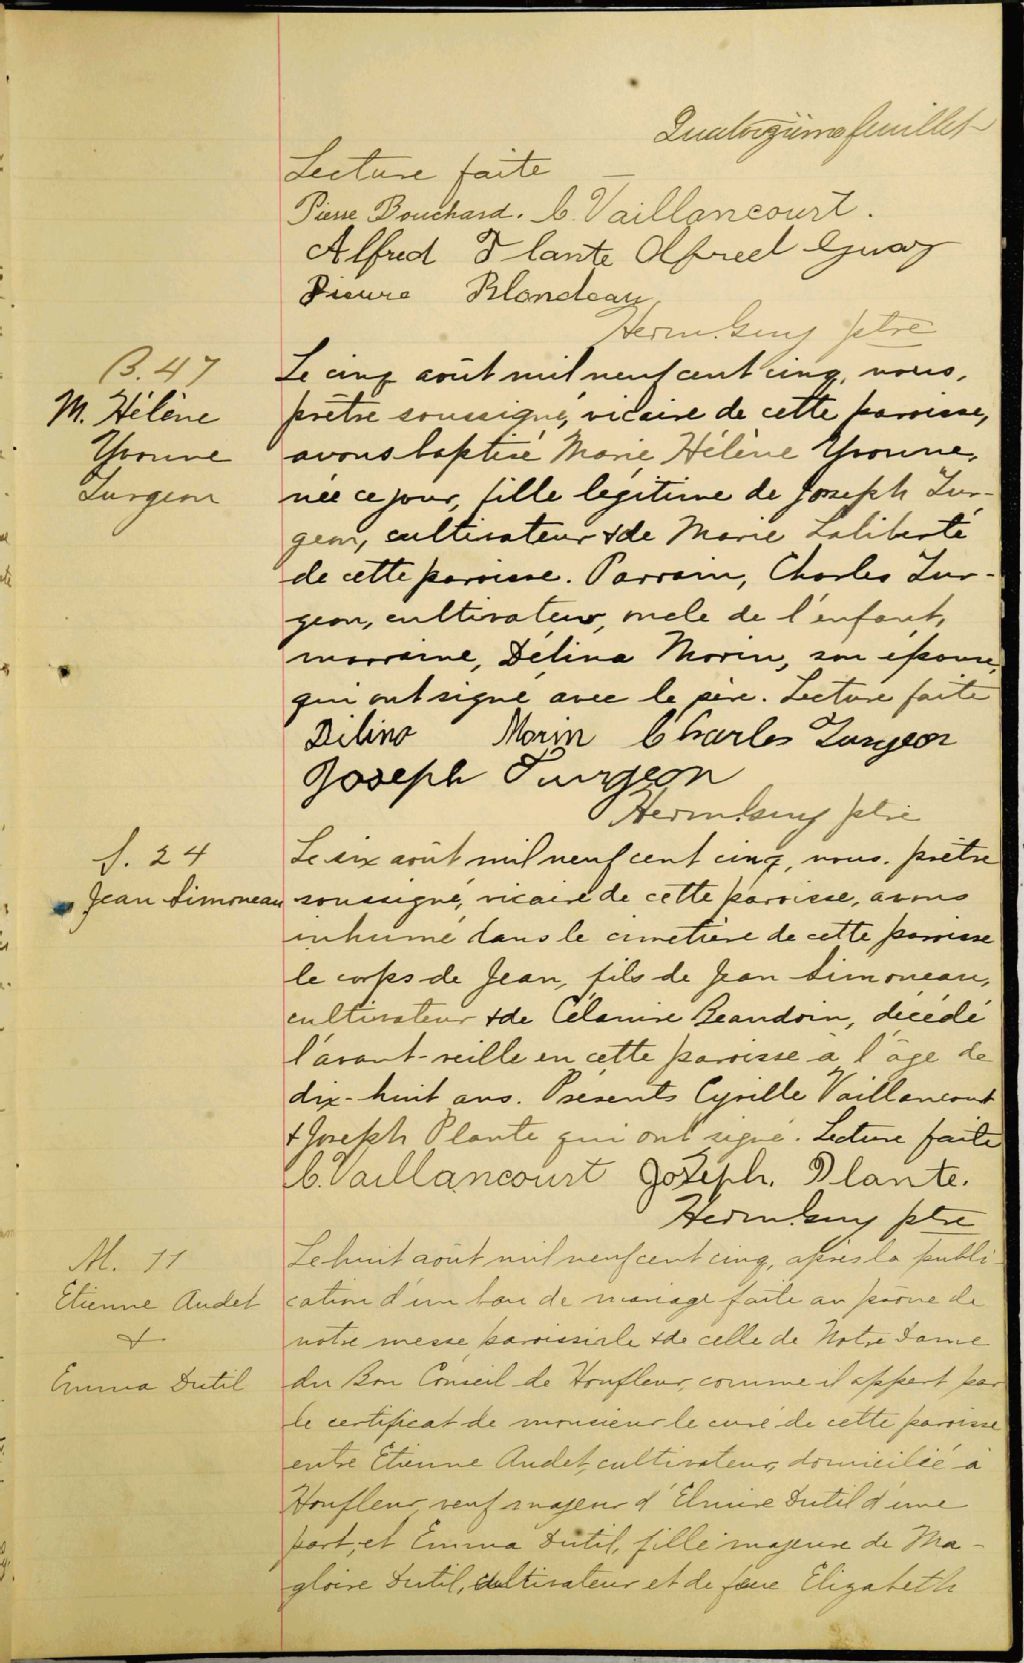 Quatorzième feuillet
Lecture faite
Pierre Bouchard. C. Vaillancourt.
Alfred Plante Alfred Guay
Pierre Blondeau
Herm. Guy ptre
B. 47
M. Hélène
Yvonne
Turgeon
Le cinq août mil neuf cent cinq, nous,
prêtre soussigné, vicaire de cette paroisse,
avons baptisé Marie Hélène Yvonne,
née ce jour, fille légitime de Joseph Tur-
geon, cultivateur & de Marie Laliberté
de cette paroisse. Parrain, Charles Tur-
geon, cultivateur, oncle de l'enfant,
marraine, Délina Morin, son épouse,
qui ont signé avec le père. Lecture faite
Dilina Morin Charles Turgeon
Joseph Turgeon
Herm. Guy ptre
S. 24
Jean Simoneau
Le six août mil neuf cent cinq, nous. prêtre
soussigné, vicaire de cette paroisse, avons
inhumé dans le cimetière de cette paroisse
le corps de Jean, fils de Jean Simoneau,
cultivateur & de Célanire Beaudoin, décédé
l'avant-veille en cette paroisse à l'âge de
dix-huit ans. Présents Cyrille Vaillancourt
& Joseph Plante qui ont signé. Lecture faite
C. Vaillancourt Joseph. Plante.
Herm. Guy ptre
M. 11
Etienne Audet
&
Emma Dutil
Le huit août mil neuf cent cinq, après la publi-
cation d'un ban de mariage faite au prône de
notre messe paroissiale & de celle de Notre Dame
du Bon Conseil de Honfleur, comme il appert par
le certificat de monsieur le curé de cette paroisse
entre Etienne Audet, cultivateur, domicilié à
Honfleur, veuf majeur d'Elmire Dutil d'une
part, et Emma Dutil, fille majeure de Ma-
gloire Dutil, cultivateur et de feue Elizabeth